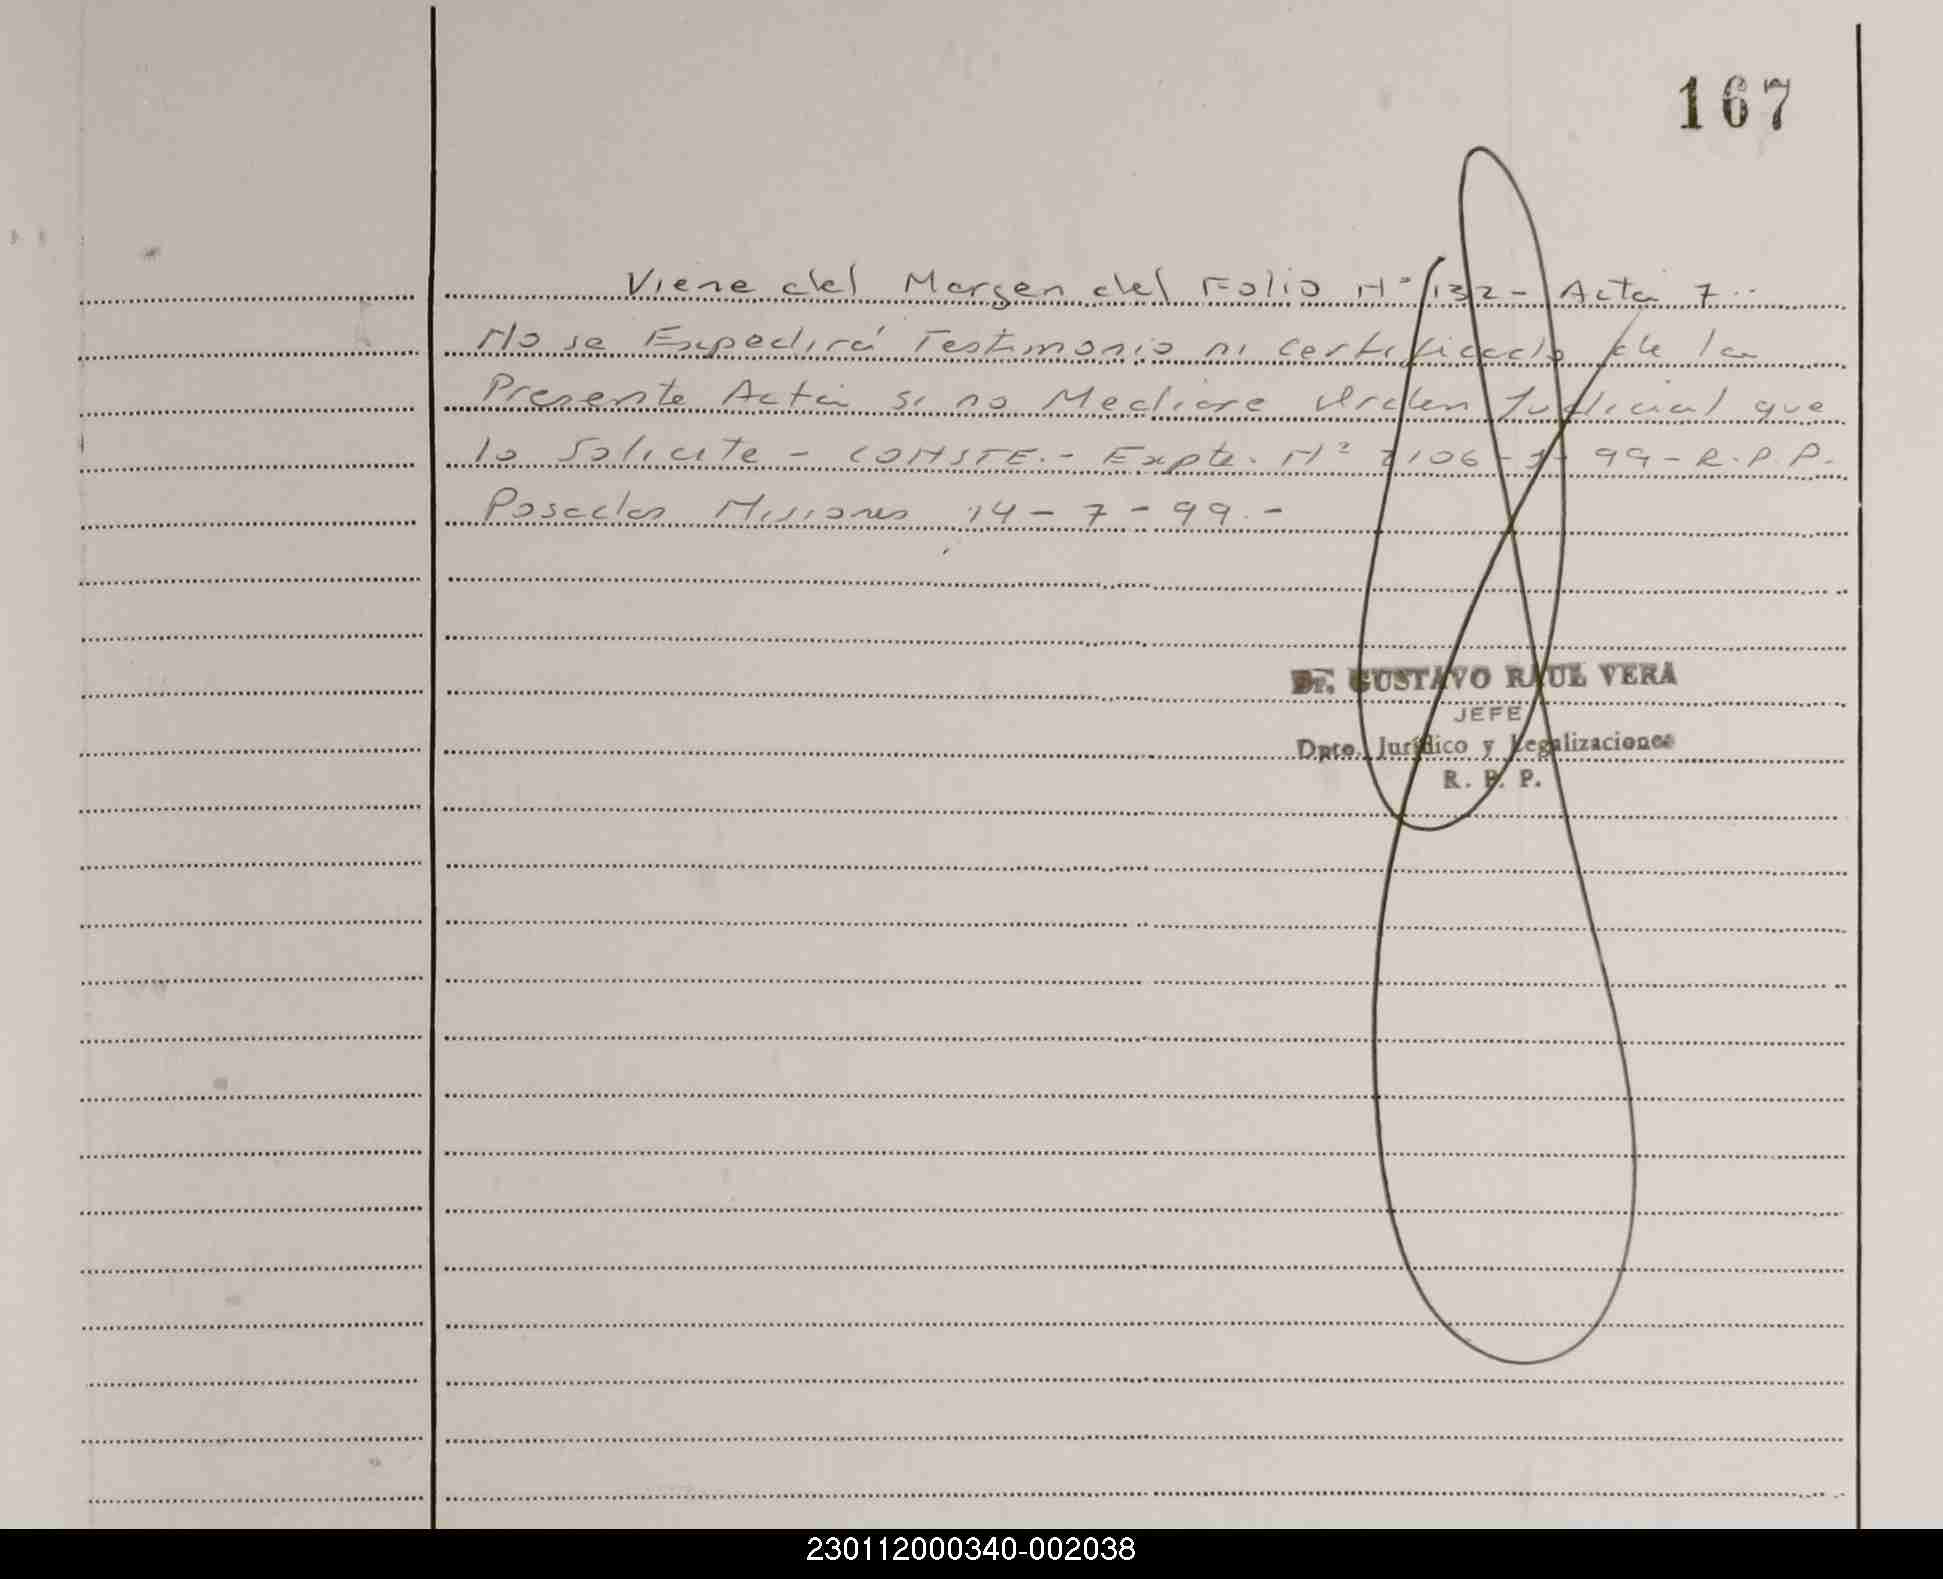 167
Viene del Margen del Folio Nº 132 - Acta 7 -
No se Expedirá Testimonio ni certificado de la
Presente Acta si no Mediare Orden Judicial que
lo Solicite - CONSTE.- Expte. Nº 2106-J-99-R.P.P.
Posadas Misiones 14-7-99.-
Dr. GUSTAVO RAUL VERA
JEFE
Dpto. Jurídico y Legalizaciones
R. P. P.
230112000340-002038